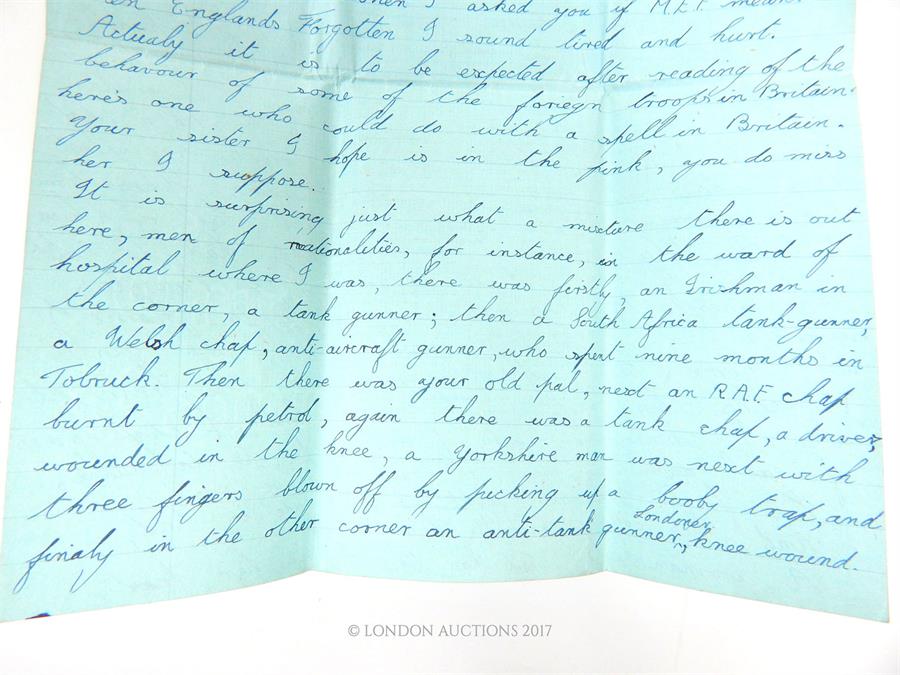 when I asked you if M.E.F. means
Men Englands Forgotten I sound tired and hurt.
Actualy it is to be expected after reading of the
behavour of some of the foriegn troops in Britain.
here's one who could do with a spell in Britain.
Your sister I hope is in the pink, you do miss
her I suppose.
It is surprising just what a mixture there is out
here, men of nationalities, for instance, in the ward of
hospital where I was, there was firstly, an Irishman in
the corner, a tank gunner; then a South Africa tank-gunner,
a Welsh chap, anti-aircraft gunner, who spent nine months in
Tobruck. Then there was your old pal, next an R.A.F. chap
burnt by petrol, again there was a tank chap, a driver,
wounded in the knee, a Yorkshire man was next with
three fingers blown off by picking up a booby trap, and
finaly in the other corner an anti-tank gunner, Londoner, knee wound.
© LONDON AUCTIONS 2017